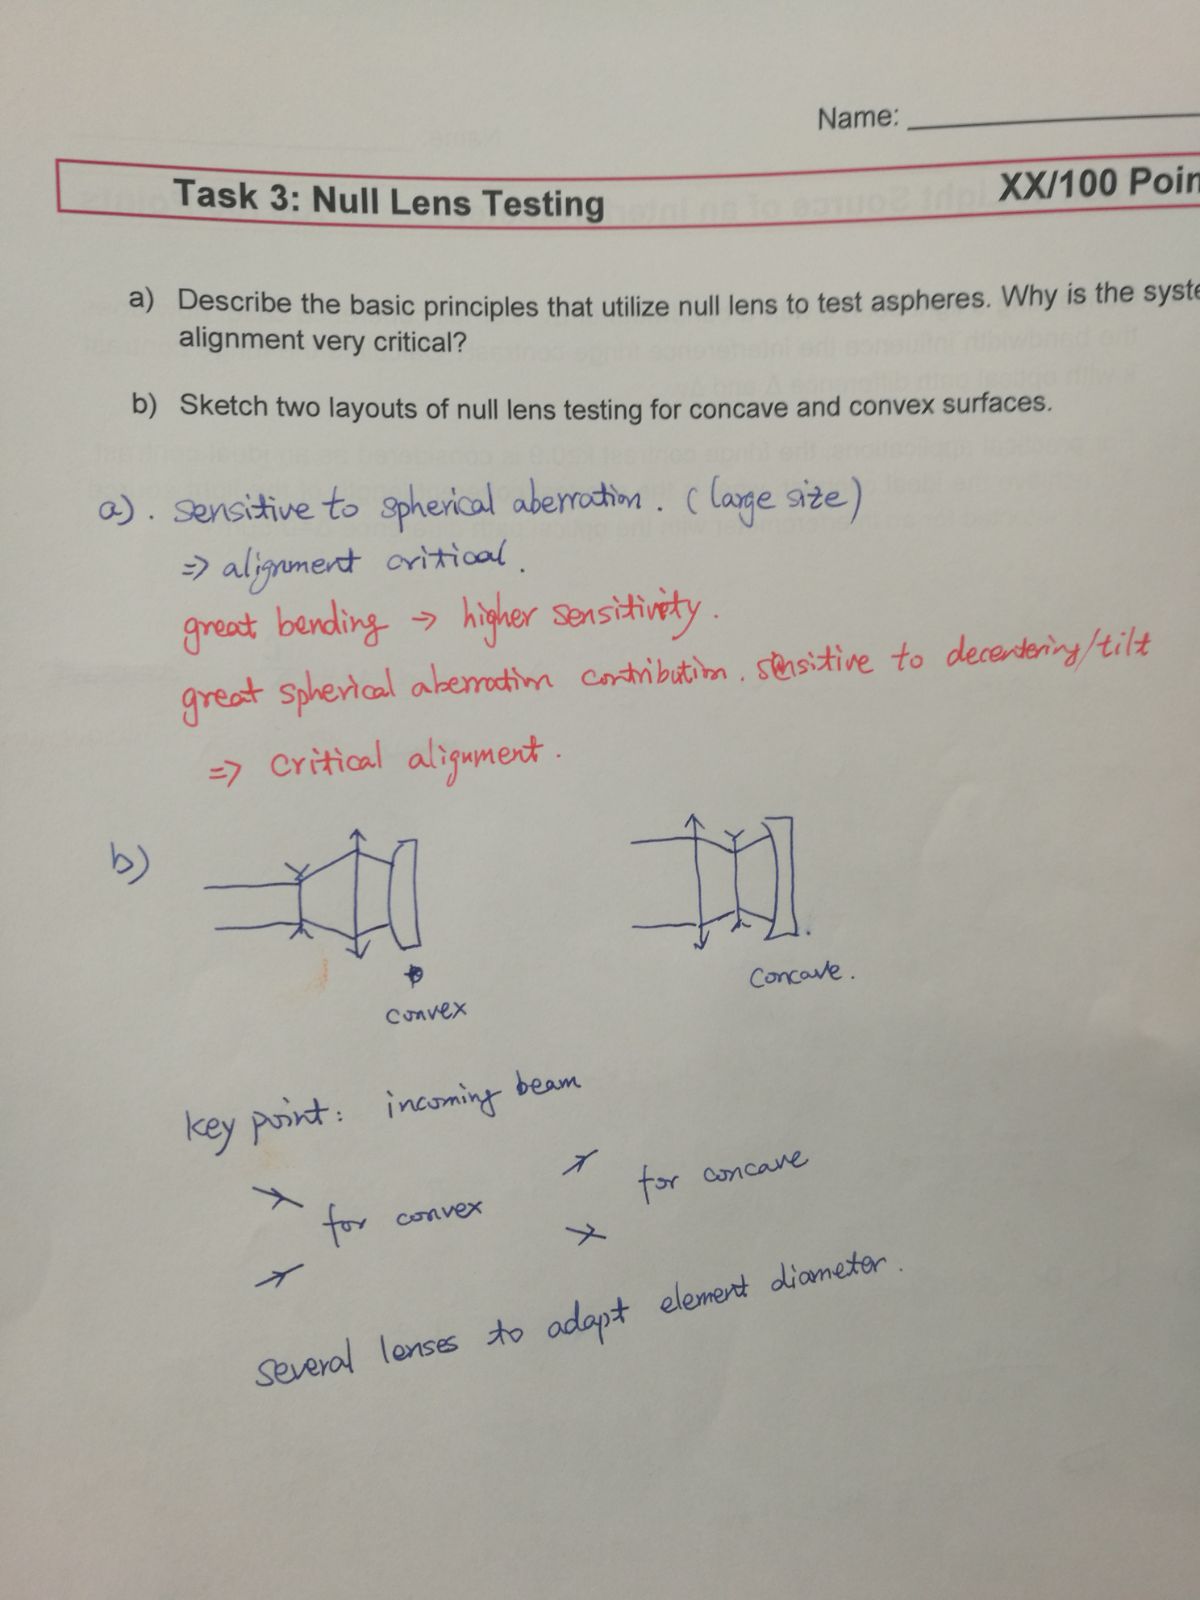 Name:
Task 3: Null Lens Testing XX/100 Poin
a) Describe the basic principles that utilize null lens to test aspheres. Why is the syste
alignment very critical?
b) Sketch two layouts of null lens testing for concave and convex surfaces.
a). sensitive to spherical aberration. (large size)
=> alignment critical.
great bending → higher sensitivity.
great spherical aberration contribution. sensitive to decentering/tilt
=> critical alignment.
b)
convex
concave.
key point: incoming beam
for convex
for concave
several lenses to adapt element diameter.